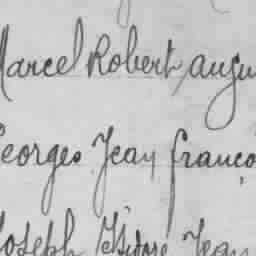 Marcel Robert, augu
Georges Jean franço
Joseph Isidore Jean